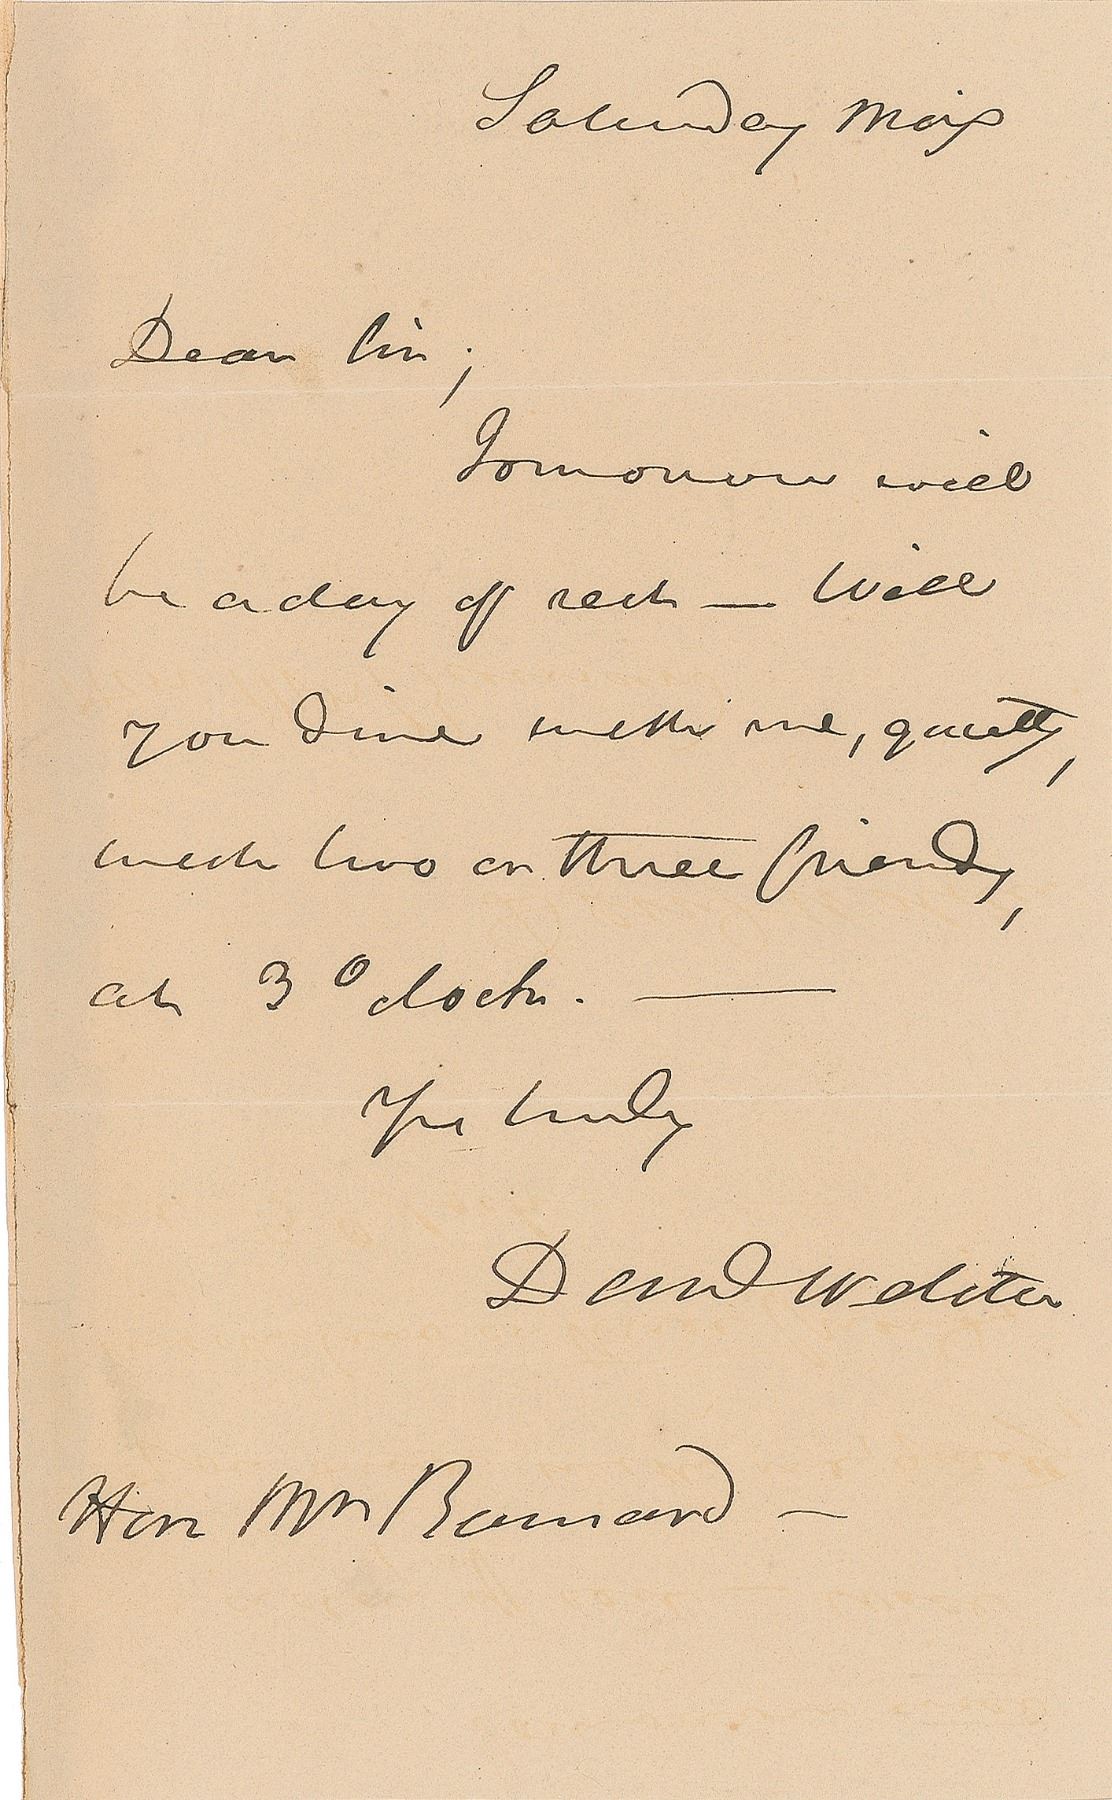 Saturday Mor̃g
Dear Sir;
Tomorrow will
be a day of rest — Will
you dine with me, quietly,
with two or three friends,
at 3 Oclock. —
Yrs truly
Danl Webster
Hon Mr Barnard —